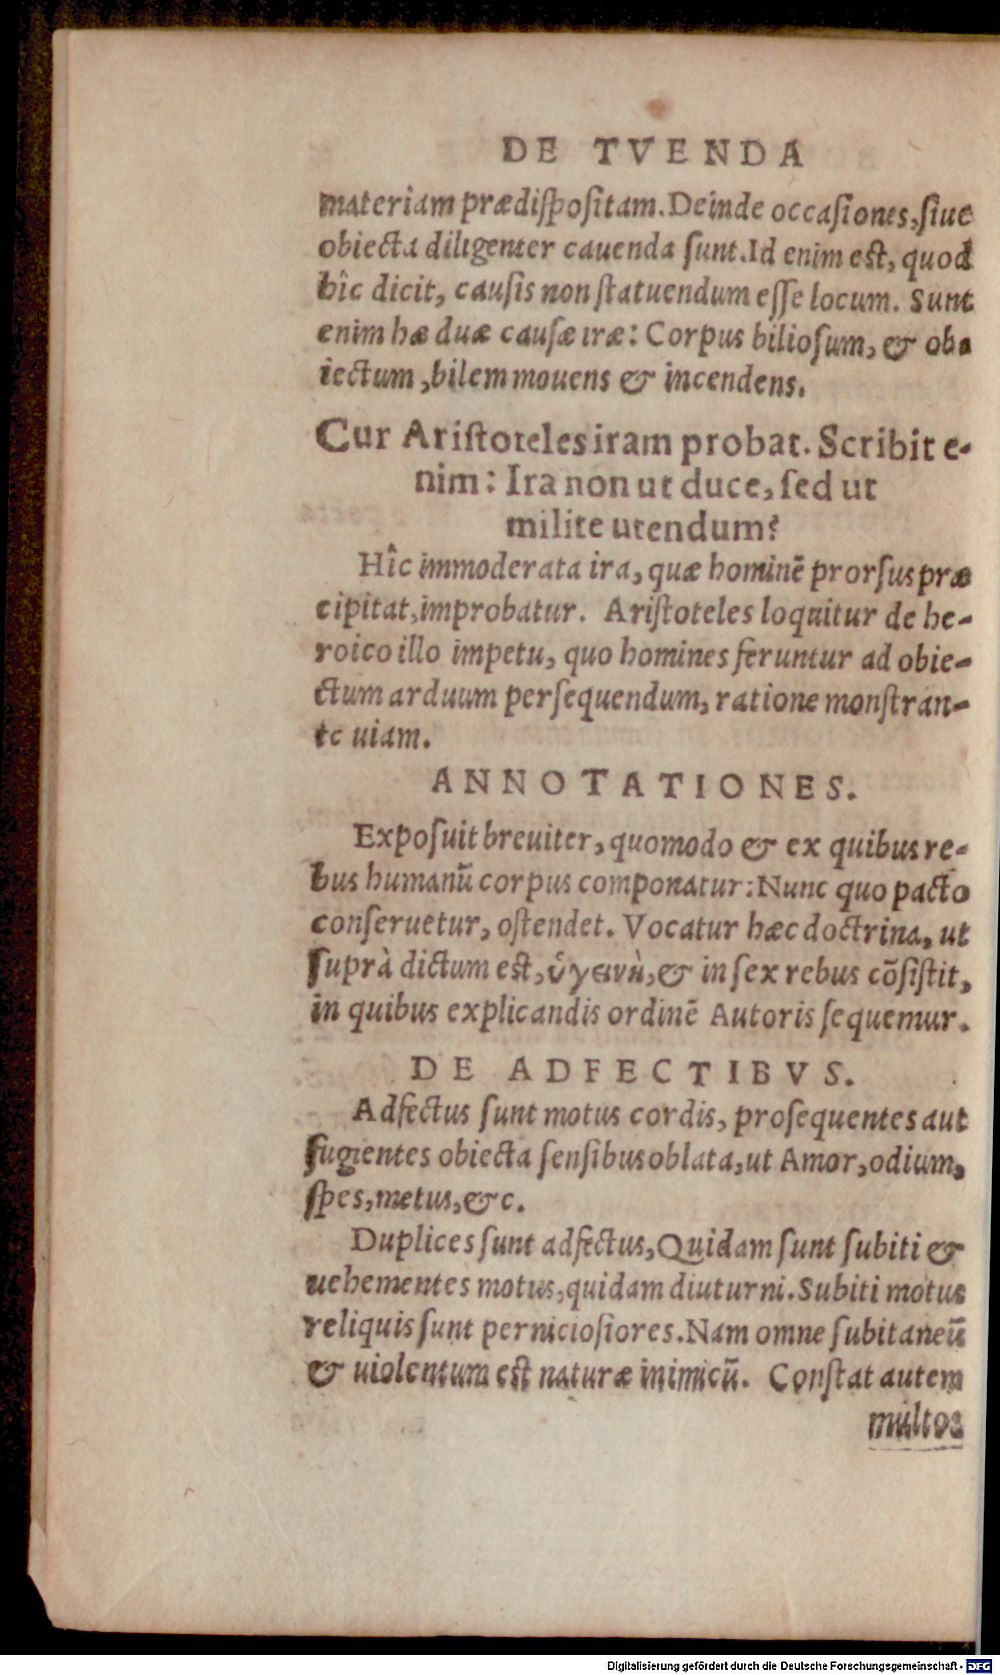 DE TVENDA
materiam prædiſpoſitam. Deinde occaſiones, ſiue
obiecta diligenter cauenda ſunt. Id enim est, quod
hîc dicit, cauſis non ſtatuendum eſſe locum. Sunt
enim hæ duæ cauſæ iræ: Corpus bilioſum, & ob-
iectum, bilem mouens & incendens.
Cur Ariſtoteles iram probat. Scribit e-
nim: Ira non ut duce, ſed ut
milite utendum?
Hîc immoderata ira, quæ hominē prorſus præ
cipitat, improbatur. Ariſtoteles loquitur de he-
roico illo impetu, quo homines feruntur ad obie-
ctum arduum perſequendum, ratione monſtran-
te uiam.
ANNOTATIONES.
Expoſuit breuiter, quomodo & ex quibus re-
bus humanū corpus componatur: Nunc quo pacto
conſeruetur, oſtendet. Vocatur hæc doctrina, ut
ſuprà dictum est, ὑγεινὴ, & in ſex rebus cōſiſtit,
in quibus explicandis ordinē Autoris ſequemur.
DE ADFECTIBVS.
Adfectus ſunt motus cordis, proſequentes aut
fugientes obiecta ſenſibus oblata, ut Amor, odium,
ſpes, metus, &c.
Duplices ſunt adfectus, Quidam ſunt ſubiti &
uehementes motus, quidam diuturni. Subiti motus
reliquis ſunt pernicioſiores. Nam omne ſubitaneū
& uiolentum est naturæ inimicū. Conſtat autem
multos
Digitalisierung gefördert durch die Deutsche Forschungsgemeinschaft - DFG